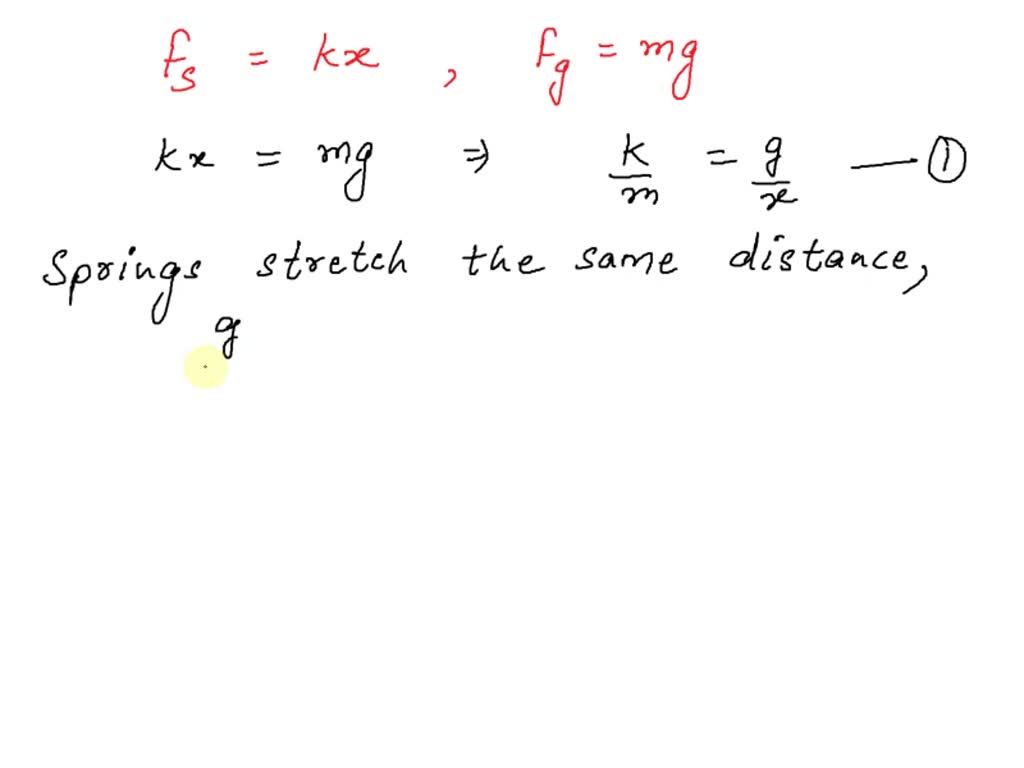 fs = kx , fg = mg
kx = mg ⇒ k/m = g/x — ①
Springs stretch the same distance,
g